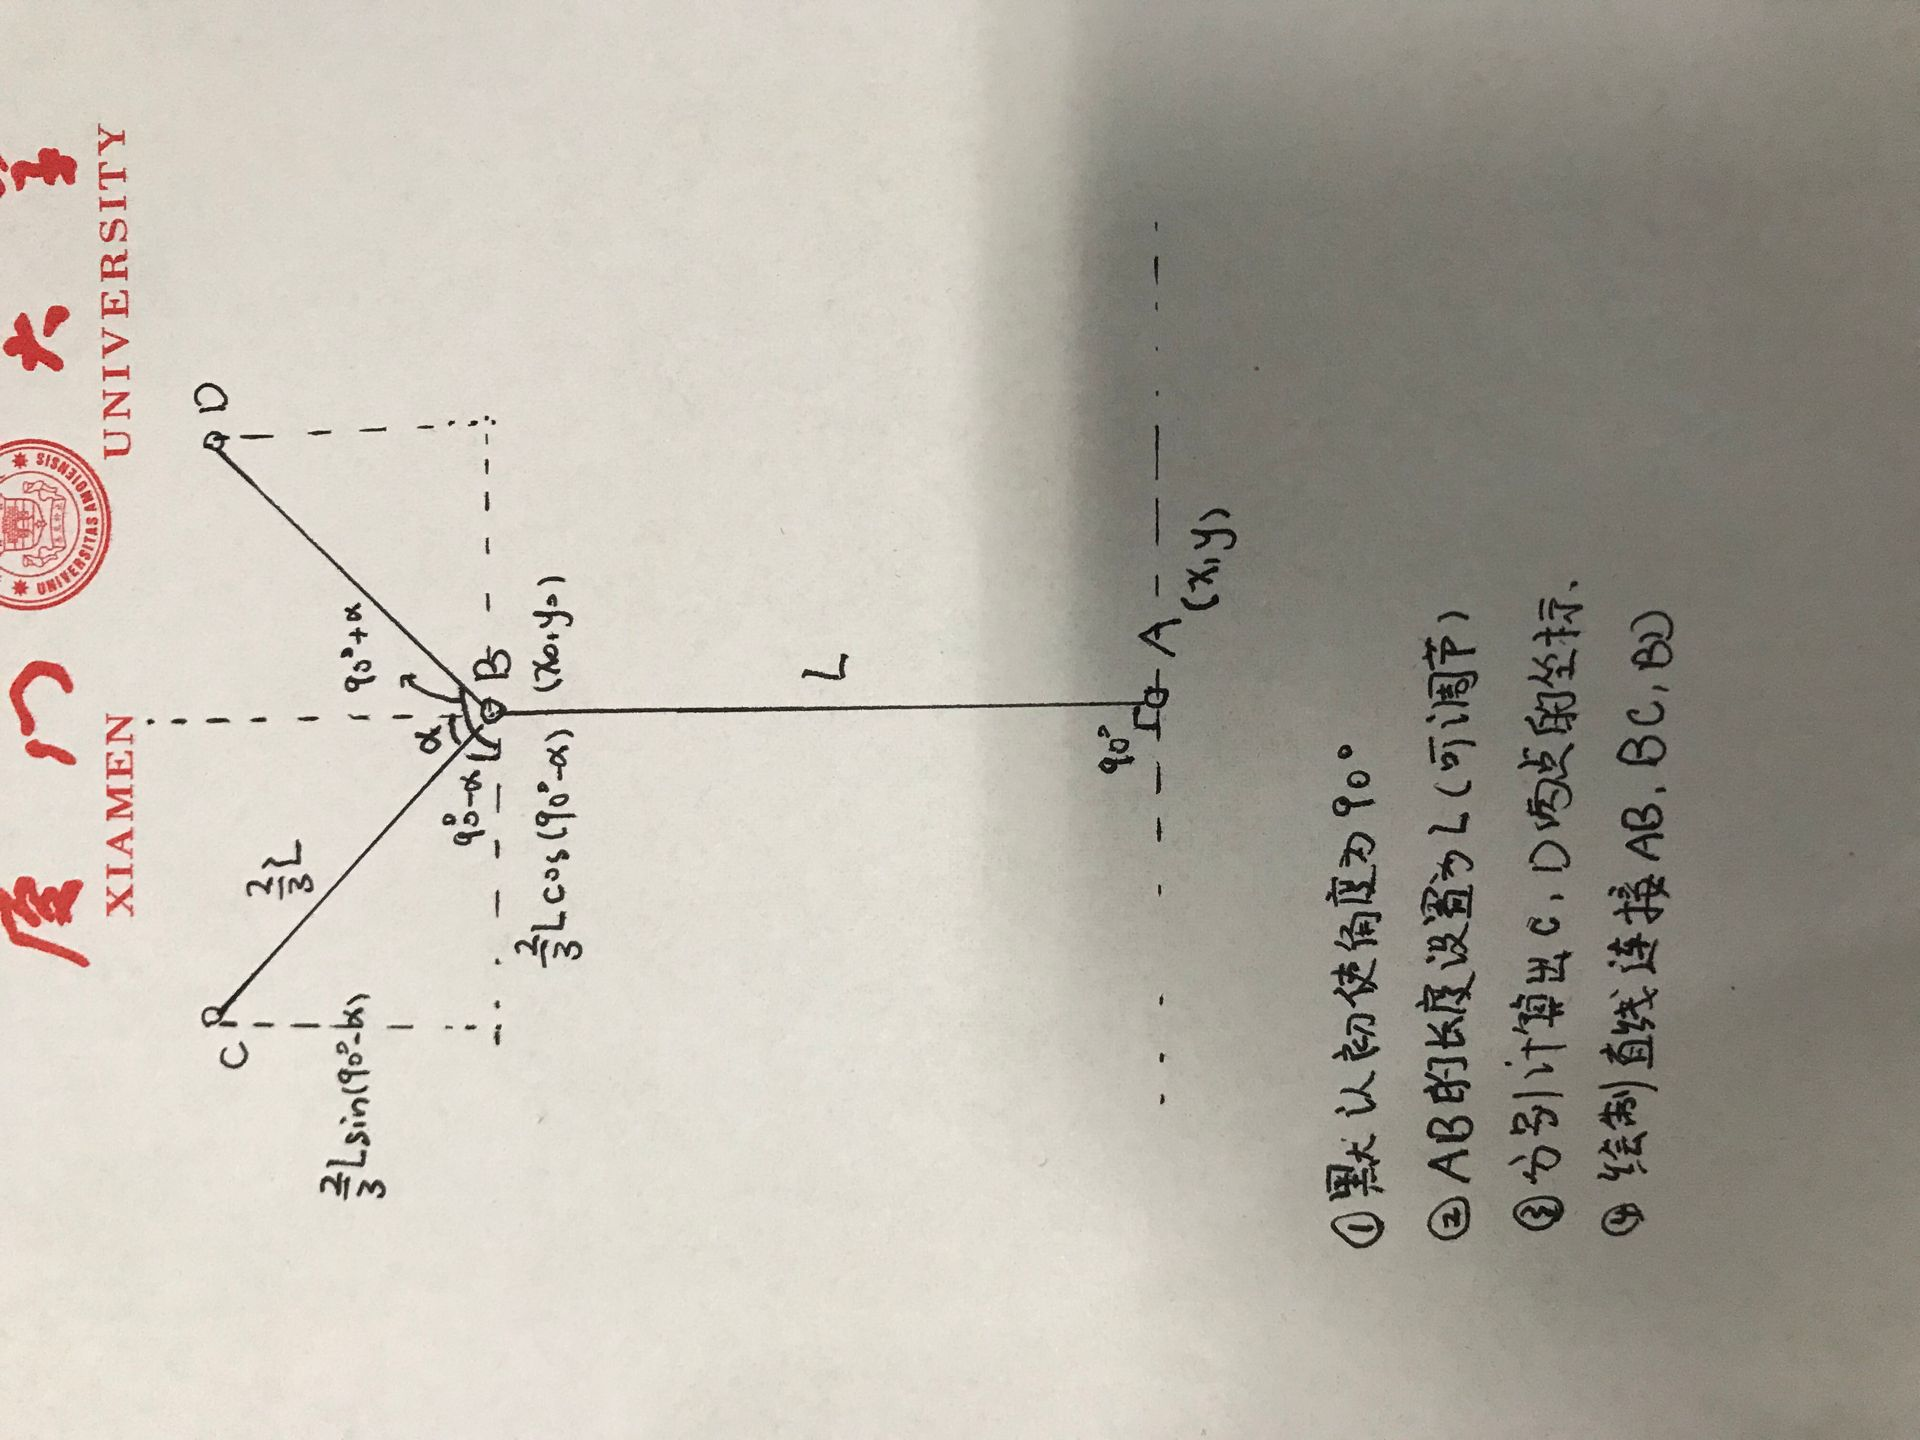 厦门大学
XIAMEN UNIVERSITY
UNIVERSITAS AMOIENSIS
C
D
2/3L
90°+α
α
90°-α
B
(x₀,y₀)
2/3Lsin(90°-α)
2/3Lcos(90°-α)
L
90°
A
(x,y)
①默认初使角度为90°
②AB的长度设置为L(可调节)
③分别计算出C,D两点的坐标.
④绘制直线连接AB,BC,BD